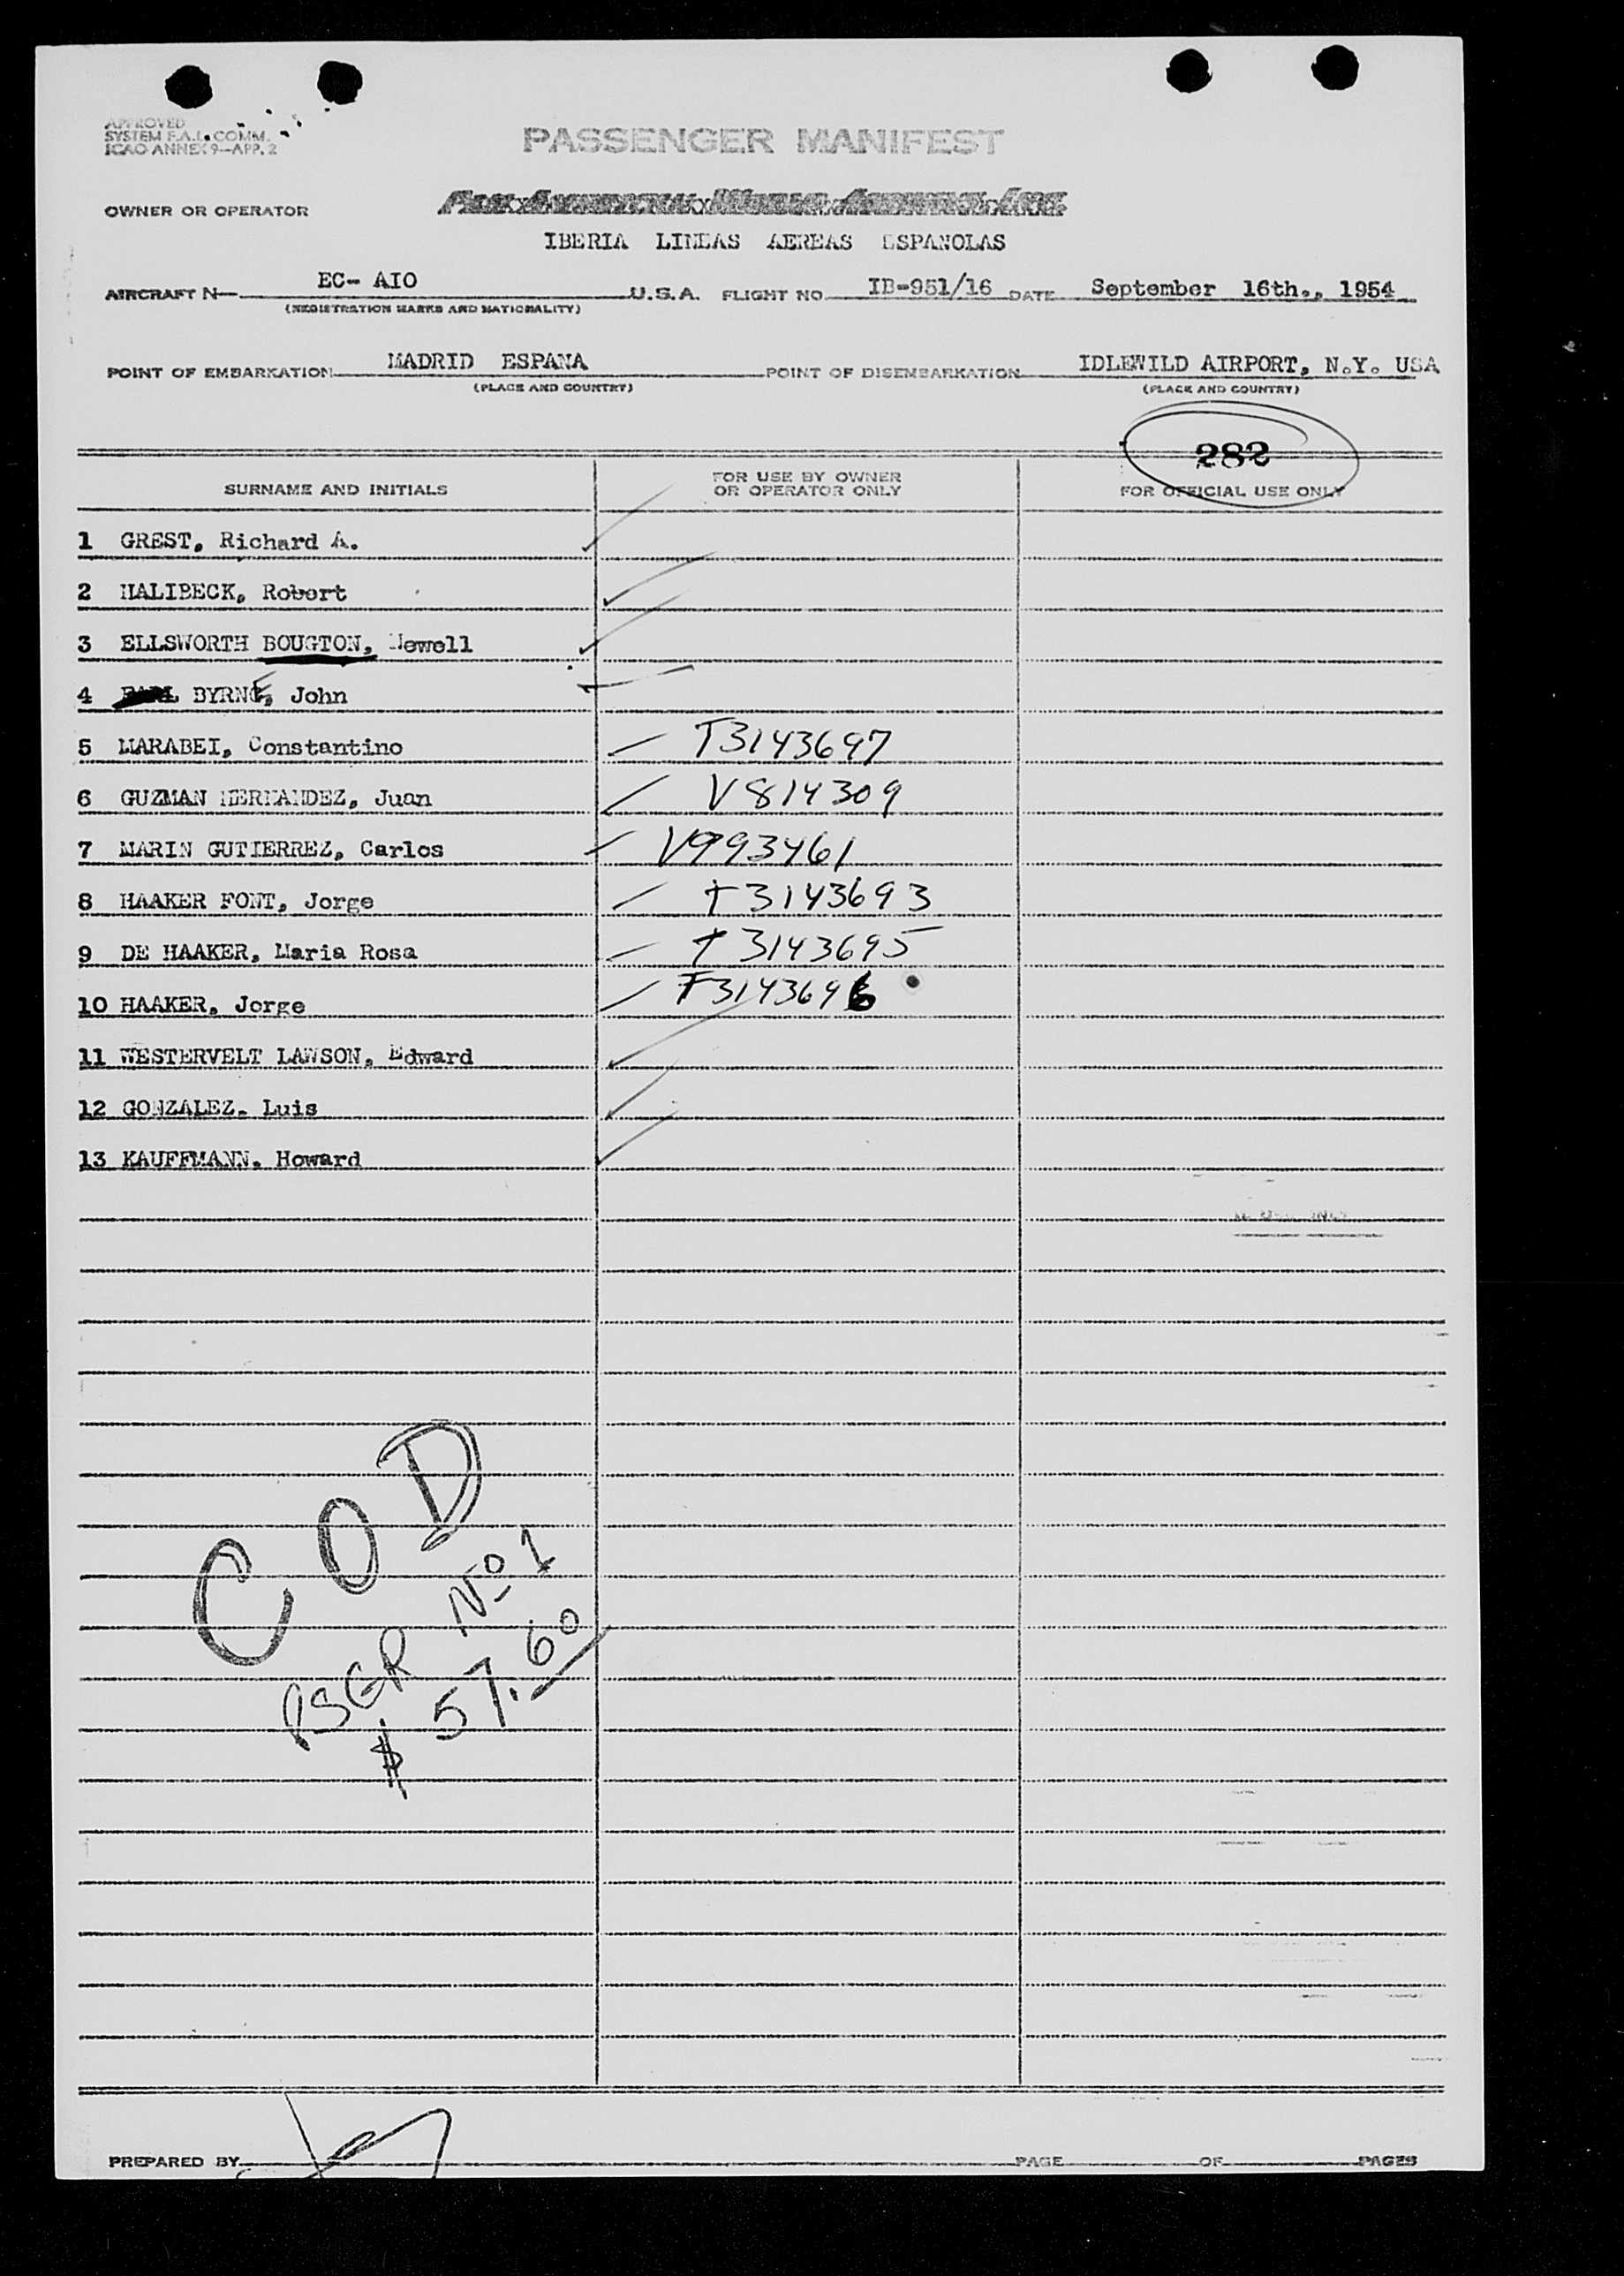 APPROVED
SYSTEM F.A.L. COMM.
ICAO ANNEX 9—APP. 2
PASSENGER MANIFEST
OWNER OR OPERATOR
IBERIA LINEAS AEREAS ESPANOLAS
AIRCRAFT N— EC- AIO U.S.A. FLIGHT NO. IB-951/16 DATE September 16th., 1954
(REGISTRATION MARKS AND NATIONALITY)
POINT OF EMBARKATION MADRID ESPANA POINT OF DISEMBARKATION IDLEWILD AIRPORT, N.Y. USA
(PLACE AND COUNTRY) (PLACE AND COUNTRY)
282
SURNAME AND INITIALS FOR USE BY OWNER OR OPERATOR ONLY FOR OFFICIAL USE ONLY
1 GREST, Richard A.
2 HALIBECK, Robert
3 ELLSWORTH BOUGTON, Newell
4 BYRNE, John
5 MARABEI, Constantino T3143697
6 GUZMAN HERNANDEZ, Juan V814309
7 MARIN GUTIERREZ, Carlos V993461
8 HAAKER FONT, Jorge T3143693
9 DE HAAKER, Maria Rosa T3143695
10 HAAKER, Jorge T3143696
11 WESTERVELT LAWSON, Edward
12 GONZALEZ. Luis
13 KAUFFMANN. Howard
COD
PSGR Nº 1
$ 57.60
PREPARED BY PAGE OF PAGES